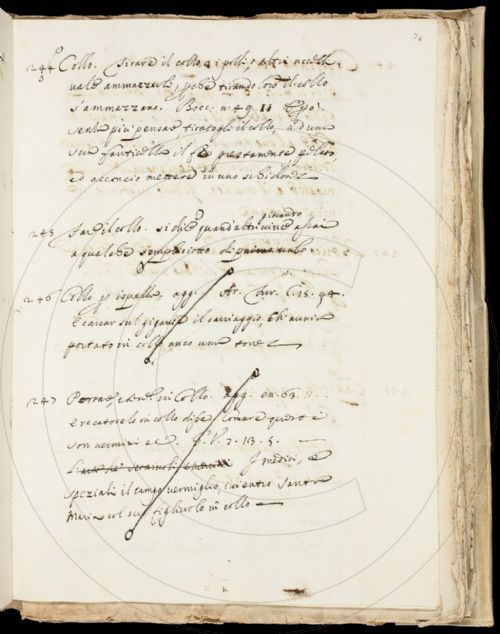 76
244 Collo. Tirare il collo a i polli, o altri uccelli
vale ammazzarli, perche tirando loro il collo
s'ammazzano. Bocc. n. 49. 11 E però
senza più pensare tiratogli il collo, ad una
sua fanticella il fe prestamente pelato,
ed acconcio mettere in uno schidone
245 Fare il collo. si dice quand'altri vince giucando assai
a qualche sempliciotto di prima
246 Collo per ispalle, agg. Ar. Fur. C. 15. 94.
E carcar sul gigante il carriaggio, Ch' avria
portato in collo anco una torre
247 Portare, e avere in Collo. agg. en. 63. 11
E recatoselo in collo disse Comare questi e
son vermini e 7. 113. 5.
I medici, e
speziali il campo vermiglio, ivi entro Santa
Maria col suo figliuolo in collo